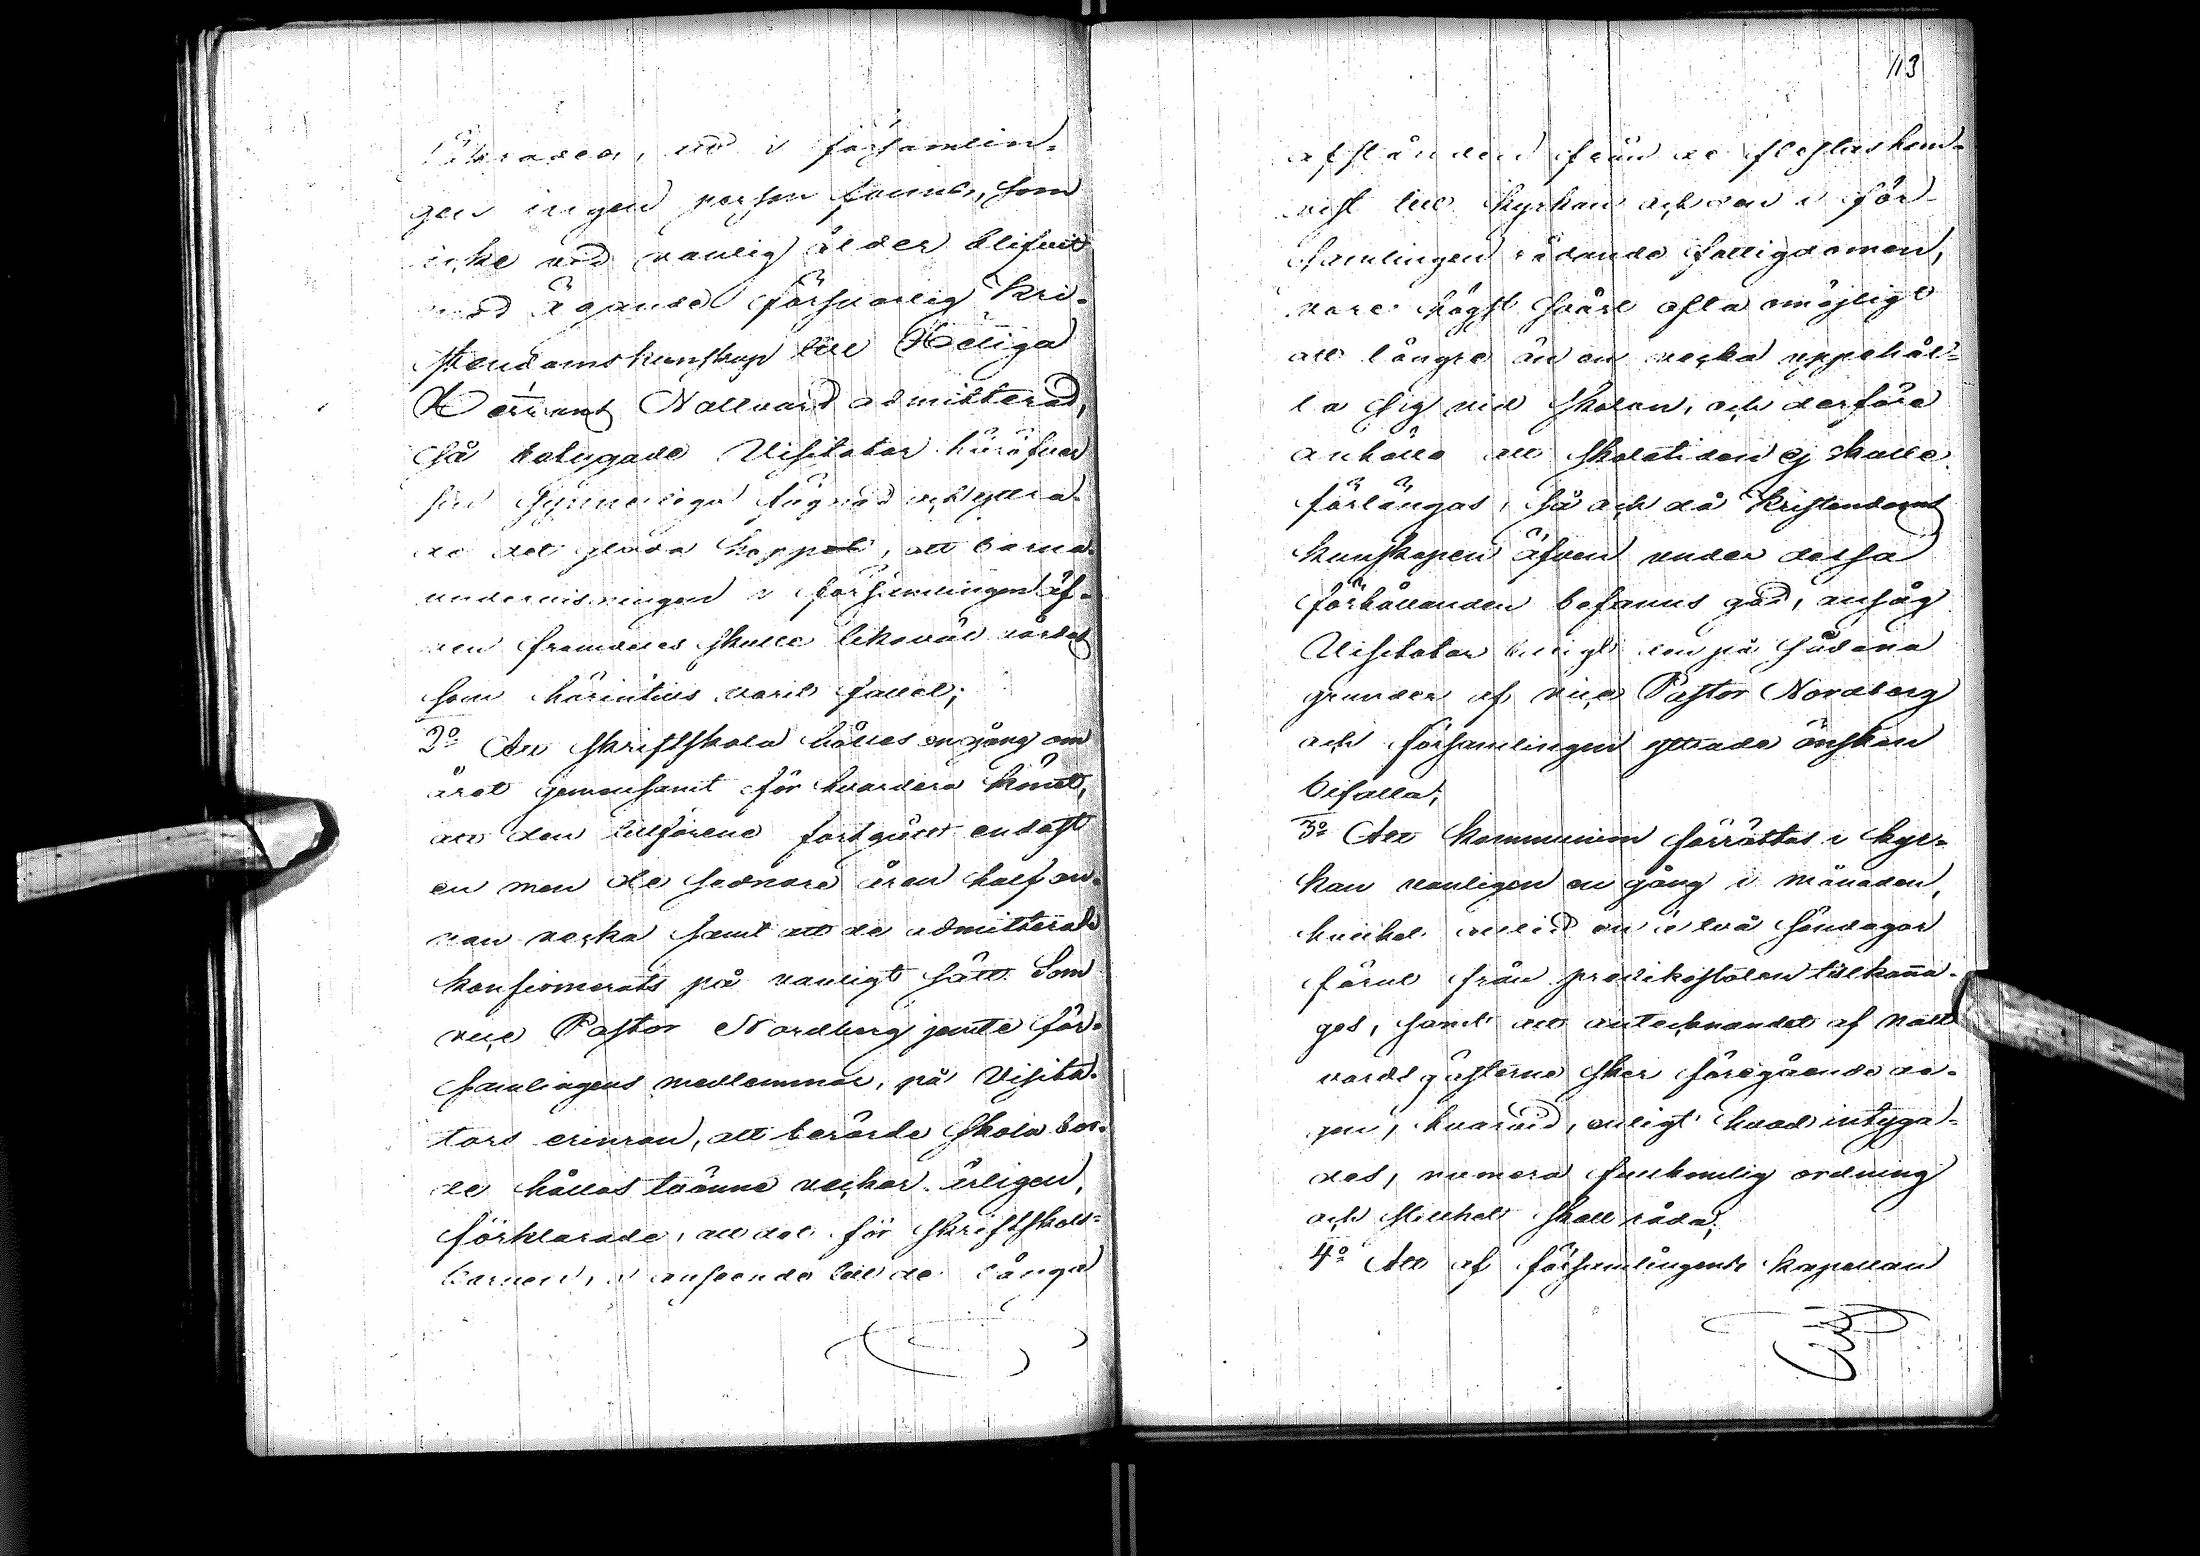 att i församlin-
gen ingen person funnes, som
icke vid vanlig ålder blifvit
med ägande försvarlig kri-
stendomskunskap till Heliga
Herrans Nattvard admitterad,
så betygade Visitator häröfver
sin synnerliga fägnad och yttra-
de det glada hoppet, att barna-
undervisningen i församlingen äf-
ven framdeles skulle likaväl vårdas
som härintills varit fallet;
2o Att skriftskola hålles en gång om
året gemensamt för hvardera könet,
att den tillförene fortgått endast
en men de sednare åren half an-
nan vecka samt att de admitterade
konfirmerats på vanligt sätt. Som
vice Pastor Nordberg jemte för-
samlingens medlemmar, på Visita-
tors erinran, att berörde skola bor-
de hållas tvänne veckor årligen,
förklarade, att det för skriftskol-
barnen, i anseende till de långa
113
afstånden från de flestas hem-
vist till kyrkan och den i för-
samlingen rådande fattigdomen,
vore högst svårt ofta omöjligt
att längre än en vecka uppehål-
la sig vid skolan, och derföre
anhöllo att skoletiden ej skulle
förlängas, så och då kristendoms
kunskapen äfven under dessa
förhållanden befanns god, ansåg
Visitator sig den på sådana
grunder af vice Pastor Nordberg
och församlingen yttrade önskan
bifalla;
3o Att kommunion förrättas i kyr-
kan vanligen en gång i månaden,
hvilket alltid en à två söndagar
förut från predikostolen tillkänna-
ges, samt att antecknandet af natt
vardsgästerne sker föregående da-
gen, hvarvid, enligt hvad intyga-
des, numera fullkomlig ordning
och stillhet skall råda;
4o Att af församlingens kapellan